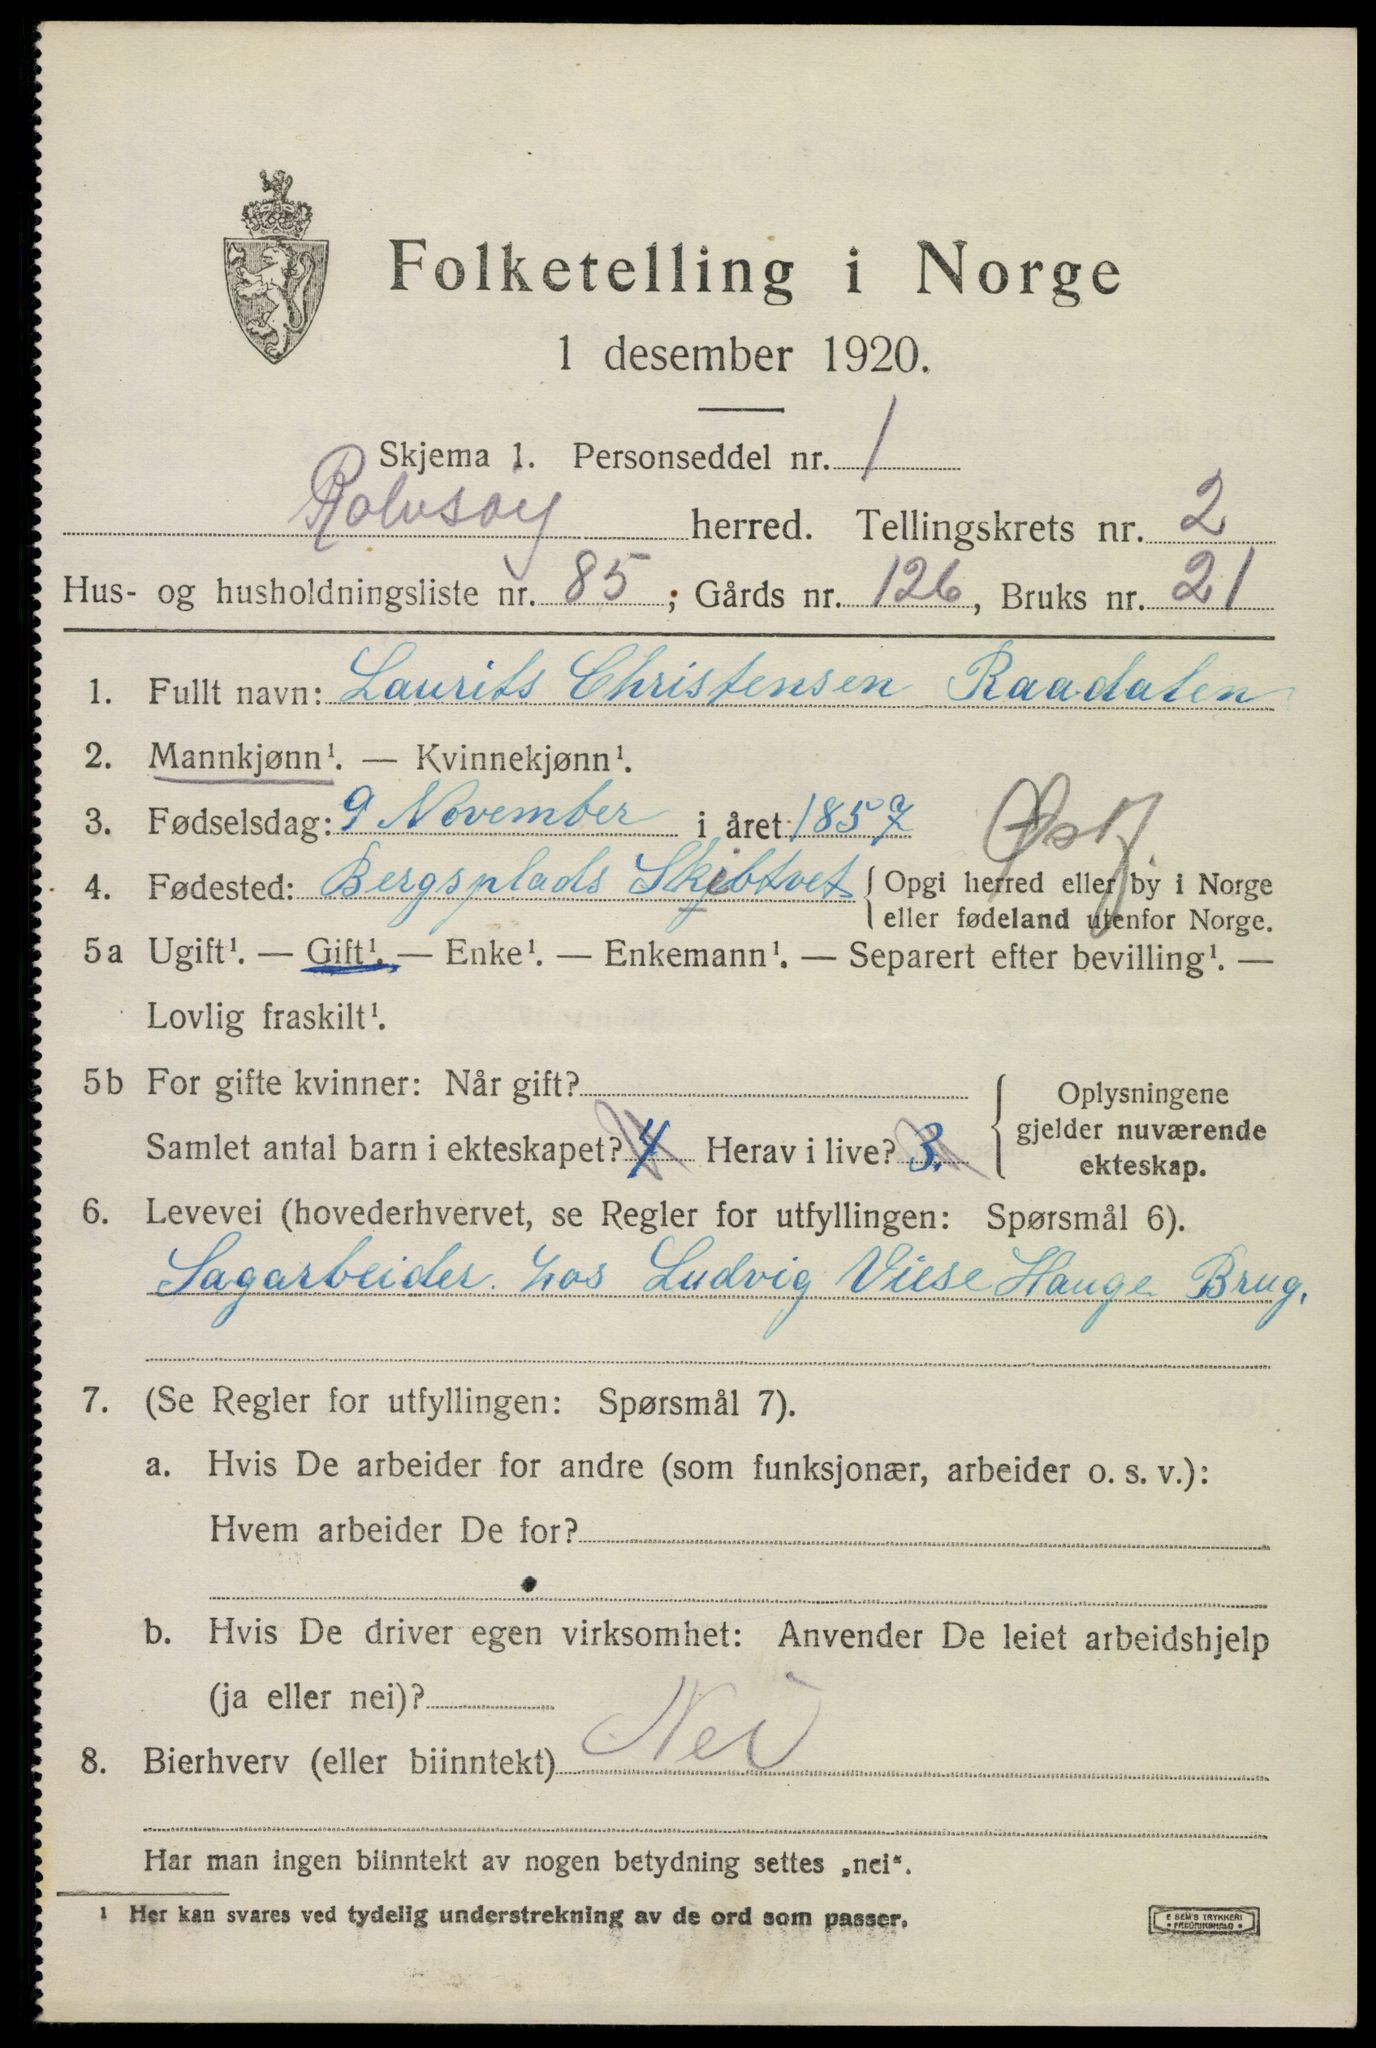 Folketelling i Norge
1 desember 1920.
Skjema 1. Personseddel nr. 1
Rolvsøy herred. Tellingskrets nr. 2
Hus- og husholdningsliste nr. 85; Gårds nr. 126, Bruks nr. 21
1. Fullt navn: Laurits Christensen Raadalen
2. Mannkjønn¹. — Kvinnekjønn¹.
3. Fødselsdag: 9 November i året 1857
Østf
4. Fødested: Bergsplads Skibtvet { Opgi herred eller by i Norge
eller fødeland utenfor Norge.
5a Ugift¹. — Gift¹. — Enke¹. — Enkemann¹. — Separert efter bevilling¹. —
Lovlig fraskilt¹.
5b For gifte kvinner: Når gift?
Samlet antal barn i ekteskapet? 4 Herav i live? 3.
{ Oplysningene
gjelder nuværende
ekteskap.
6. Levevei (hovederhvervet, se Regler for utfyllingen: Spørsmål 6).
Sagarbeider. hos Ludvig Viese Hauge Brug.
7. (Se Regler for utfyllingen: Spørsmål 7).
a. Hvis De arbeider for andre (som funksjonær, arbeider o. s. v.):
Hvem arbeider De for?
b. Hvis De driver egen virksomhet: Anvender De leiet arbeidshjelp
(ja eller nei)?
8. Bierhverv (eller biinntekt) Nei
Har man ingen biinntekt av nogen betydning settes „nei“.
¹ Her kan svares ved tydelig understrekning av de ord som passer.
E SEM'S TRYKKERI
• FREDRIKSHALD •